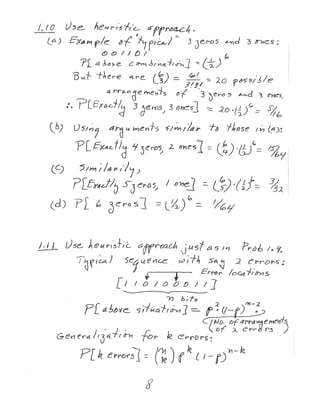 1.10 Use heuristic approach.
(a) Example of "typical" 3 zeros and 3 ones:
0 0 1 1 0 1
P[above combination] = (1/2)^6
But there are (6 3) = 6!/3!3! = 20 possible
arrangements of 3 zeros and 3 ones.
∴ P[Exactly 3 zeros, 3 ones] = 20·(1/2)^6 = 5/16
(b) Using arguments similar to those in (a):
P[Exactly 4 zeros, 2 ones] = (6 4)·(1/2)^6 = 15/64
(c) Similarly,
P[Exactly 5 zeros, 1 one] = (6 5)·(1/2)^6 = 3/32
(d) P[6 zeros] = (1/2)^6 = 1/64
1.11 Use heuristic approach just as in Prob 1.9.
Typical sequence with say 2 errors:
Error locations
[1 1 0 1 0 0 0 1 1]
n bits
P[above situation] = p^2·(1-p)^n-2
(NO. of arrangements
of 2 errors)
Generalization for k errors:
P[k errors] = (n k) p^k (1-p)^n-k
8